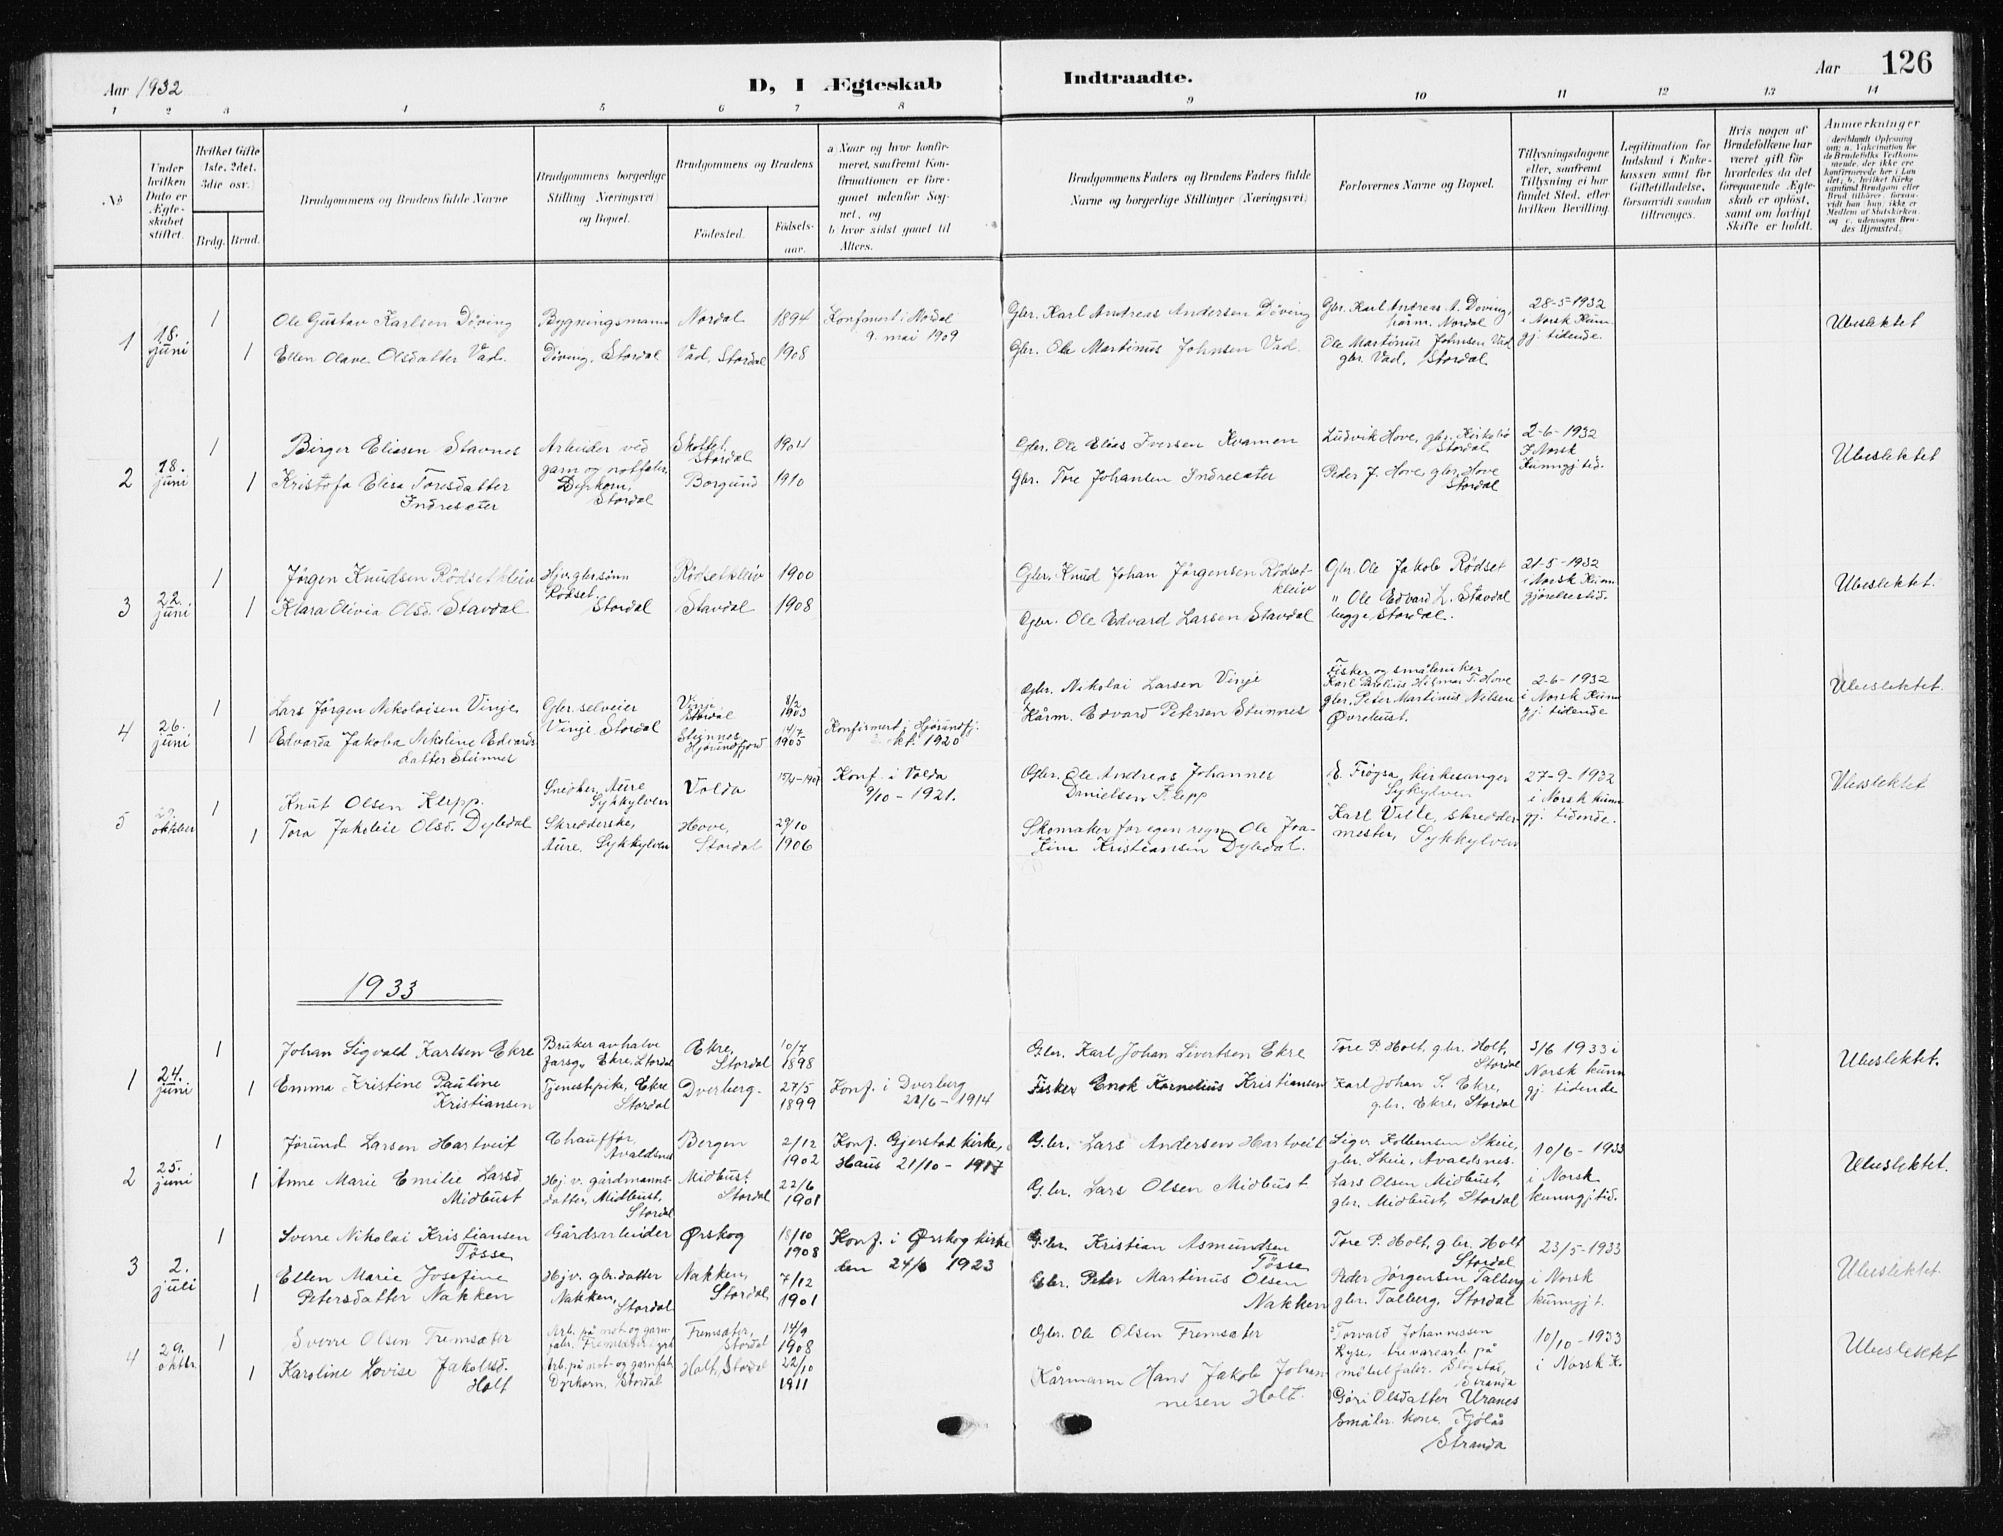 Aar 1932
D, I Ægteskab
Indtraadte.
Aar 126
1 2 3 4 5 6 7 8 9 10 11 12 13 14
№
Under hvilken Dato er Ægteskabet stiftet.
Hvilket Gifte 1ste, 2det, 3die osv.
Brdg. Brud.
Brudgommens og Brudens fulde Navne
Brudgommens borgerlige Stilling (Næringsvei) og Bopæl.
Brudgommens og Brudens
Fødested.
Fødselsaar.
a) Naar og hvor konfirmeret, saafremt Konfirmationen er foregaaet udenfor Sognet, og
b) hvor sidst gaaet til Alters.
Brudgommens Faders og Brudens Faders fulde Navne og borgerlige Stillinger (Næringsvei)
Forlovernes Navne og Bopæl.
Tillysningsdagene eller, saafremt Tillysning ei har fundet Sted, efter hvilken Bevilling.
Legitimation for Indskud i Enkekassen samt for Giftetilladelse, forsaavidt saadan tiltrænges.
Hvis nogen af Brudefolkene har været gift før hvorledes da det foregaaende Ægteskab er opløst, samt om lovligt Skifte er holdt.
Anmærkninger
1 18. juni 1
Ole Gustav Karlsen Döving
Bygningsmann
Nordal 1894
Konf. i Nordal
9. mai 1909
Gbr. Karl Andreas Andersen Döving
Gbr. Karl Andreas A. Doving,
Nordal
28-5-1932
i Norsk Kunn
gj. tidende.
Ubeslektet
1 Ellen Olave Olsdatter Vad.
Döving, Stordal
Vad, Stordal 1908
Gbr. Ole Martinus Johnsen Vad.
Ole Martinus Johnsen Vad
gbr. Vad, Stordal
2 18. juni 1
Birger Eliasen Stavnes
Arbeider ved
garn og notfabr.
Dyrkorn,
Stordal
Skottet,
Stordal
1904
Gbr. Ole Elias Iversen Kvamen
Ludvik Hove, gbr. Kirkebö
Stordal
2-6-1932
I Norsk
Kunngj tid.
Ubeslektet
1 Kristofa Elesa Toresdatter
Indresæter
Borgund 1910
Gbr. Tore Johansen Indresæter
Peder J. Hove, gbr. Hove
Stordal
3 22. juni 1
Jörgen Knudsen Rödsetkleiv
Hjv. gbr.sönn
Rödset,
Stordal
Rödsetkleiv 1900
Gbr. Knud Johan Jörgensen Rödset-
kleiv
Gbr. Ole Jakob Rödset
21-5-1932
i Norsk Kunn
gjörelsestid.
Ubeslektet.
1 Klara Olivia Olsd. Stavdal
Stavdal 1908
Gbr. Ole Edvard Larsen Stavdal
" Ole Edvard L. Stavdal
begge Stordal.
4 26. juni 1
Lars Jörgen Nikolaisen Vinje
Gbr. selveier
Vinje Stordal
Vinje
Stordal
8/2
1903
Gbr. Nikolai Larsen Vinje
Fisker og småbruker
Karl Paulius Hilmar T. Hove
gbr. Peter Martinus Nilsen
Øvrebust.
2-6-1932
i Norsk Kunn
gj. tidende
Ubeslektet.
1 Edvarda Jakoba Nikoline Edvards
datter Stennes
Hjörundfjord
14/7
1905
Konfirmert i Hjörundfj.
1920
Kårm. Edvard Petersen Stennes
5 29. oktber 1
Knut Olsen Klepp.
Snedker, Aure
Sykkylven
Volda
15/4-1907
Konf. i Volda
9/10-1921.
Gbr. Ole Andreas Johannes
Danielsen Klepp
E. Frögsa, kirkesanger
Sykylven
27-9-1932
i Norsk kunn
gj. tidende.
Ubeslektet
1 Tora Jakobie Olsd. Dyledal
Skredderske,
Aure, Sykkylven
Hove,
Stordal
29/10
1906
Skomaker for egen regn. Ole Joa-
kim Kristiansen Dyledal.
Karl Ville, skredder-
mester, Sykkylven
1933
1 24. juni 1
Johan Sigvald Karlsen Ekre
Bruker av halve
farsg. Ekre, Stordal
Ekre,
Stordal
10/7
1898
Gbr. Karl Johan Sivertsen Ekre
Tore P. Holt, gbr. Holt,
Stordal
3/6 1933 i
Norsk kunn
gj. tidende
Ubeslektet.
1 Emma Kristine Pauline
Kristiansen
Tjenestepike, Ekre
Stordal
Dverberg.
27/5
1899
Konf. i Dverberg
21/6-1914
Fisker Enok Kornelius Kristiansen
Karl Johan S. Ekre,
gbr. Ekre, Stordal
2 25. juni 1
Jørund Larsen Hartveit
Chauffør,
Avaldsnes
Bergen
2/12
1902
Konf. Gjerstad kirke,
Haus 21/10-1917
Gbr. Lars Andersen Hartveit
Kolbensen Skeie,
gbr. Skeie, Avaldsnes.
10/6-1933
i Norsk
kunngj tid.
Ubeslektet.
1 Anne Marie Emilie Larsd.
Midbust
Hj v. gårdmanns
datter, Midbust,
Stordal
Midbust,
Stordal
22/6
1901
Gbr. Lars Olsen Midbust
Lars Olsen Midbust,
gbr. Midbust, Stordal
3 2. juli 1
Sverre Nikolai Kristiansen
Tösse
Gårdsarbeider
Ørskog
18/10
1908
Konf. i Ørskog kirke
den 24/6 1923
Gbr. Kristian Asmundsen
Tösse
Tore P. Holt, gbr. Holt
Stordal
23/5-1933
i Norsk
kunngj t.
Ubeslektet.
1 Ellen Marie Josefine
Petersdatter Nakken
Hjv. gbr.datter
Nakken,
Stordal
Nakken,
Stordal
7/12
1901
Gbr. Peter Martinus Olsen
Nakken
Peder Jörgensen Talberg
gbr. Talberg, Stordal
4 29. oktbr. 1
Sverre Olsen Fremsæter
Arb. på not- og garn-
fabr. Fremsæter
Fremsæter,
Stordal
14/9
1908
Gbr. Ole Olsen Fremsæter
Torvald Johannessen
Ryse, trevarearb. på
möbelfabr.
Stranda
10/10-1933
i Norsk K.
Ubeslektet
1 Karoline Lovise Jakobsd.
Holt
Arb. på not- og garnfabr.
Dyrkorn, Stordal
Holt, Stordal
22/10
1911
Kårmann Hans Jakob Johan-
nesen Holt.
Göri Olsdatter Uranes
småbr. kone,
Stranda